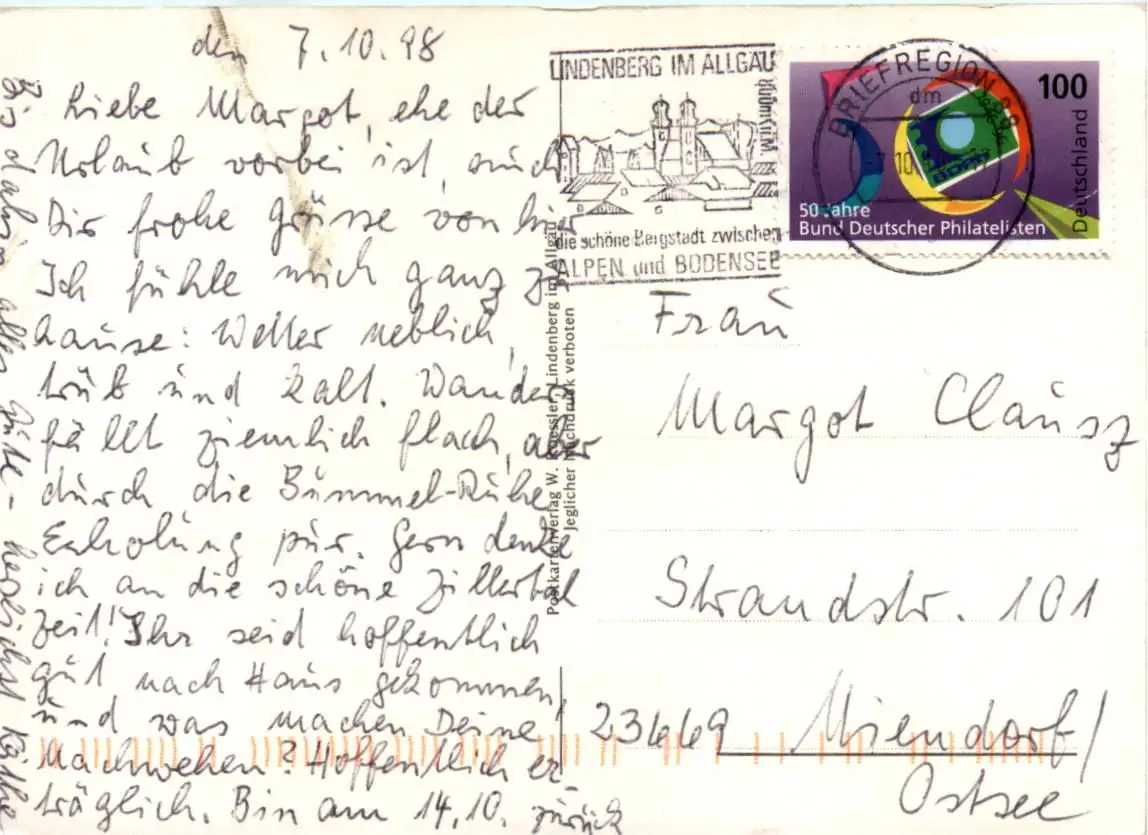 den 7.10.98
Liebe Margot, ehe der
Urlaub vorbei ist, auch
Dir frohe Grüsse von hier
Ich fühle mich ganz zu
hause: Wetter neblich,
trüb und kalt. Wandern
fällt ziemlich flach, aber
durch die Bummel-Ruhe
Erholung pur. Gern denke
ich an die schöne Zillertal
Zeit! Ihr seid hoffentlich
gut nach Haus gekommen,
und was machen Deine
Nachwehen? Hoffentlich er
träglich. Bin am 14.10. zurück
Bis dahin alles Gute - herzlichst Käthe
LINDENBERG IM ALLGÄU
die schöne Bergstadt zwischen
ALPEN und BODENSEE
BRIEFREGION 88
dm
100
Deutschland
50 Jahre
Bund Deutscher Philatelisten
Postkartenverlag W. Roessler, Lindenberg im Allgäu
Jeglicher Nachdruck verboten
Frau
Margot Clausz
Strandstr. 101
23669 Niendorf/
Ostsee